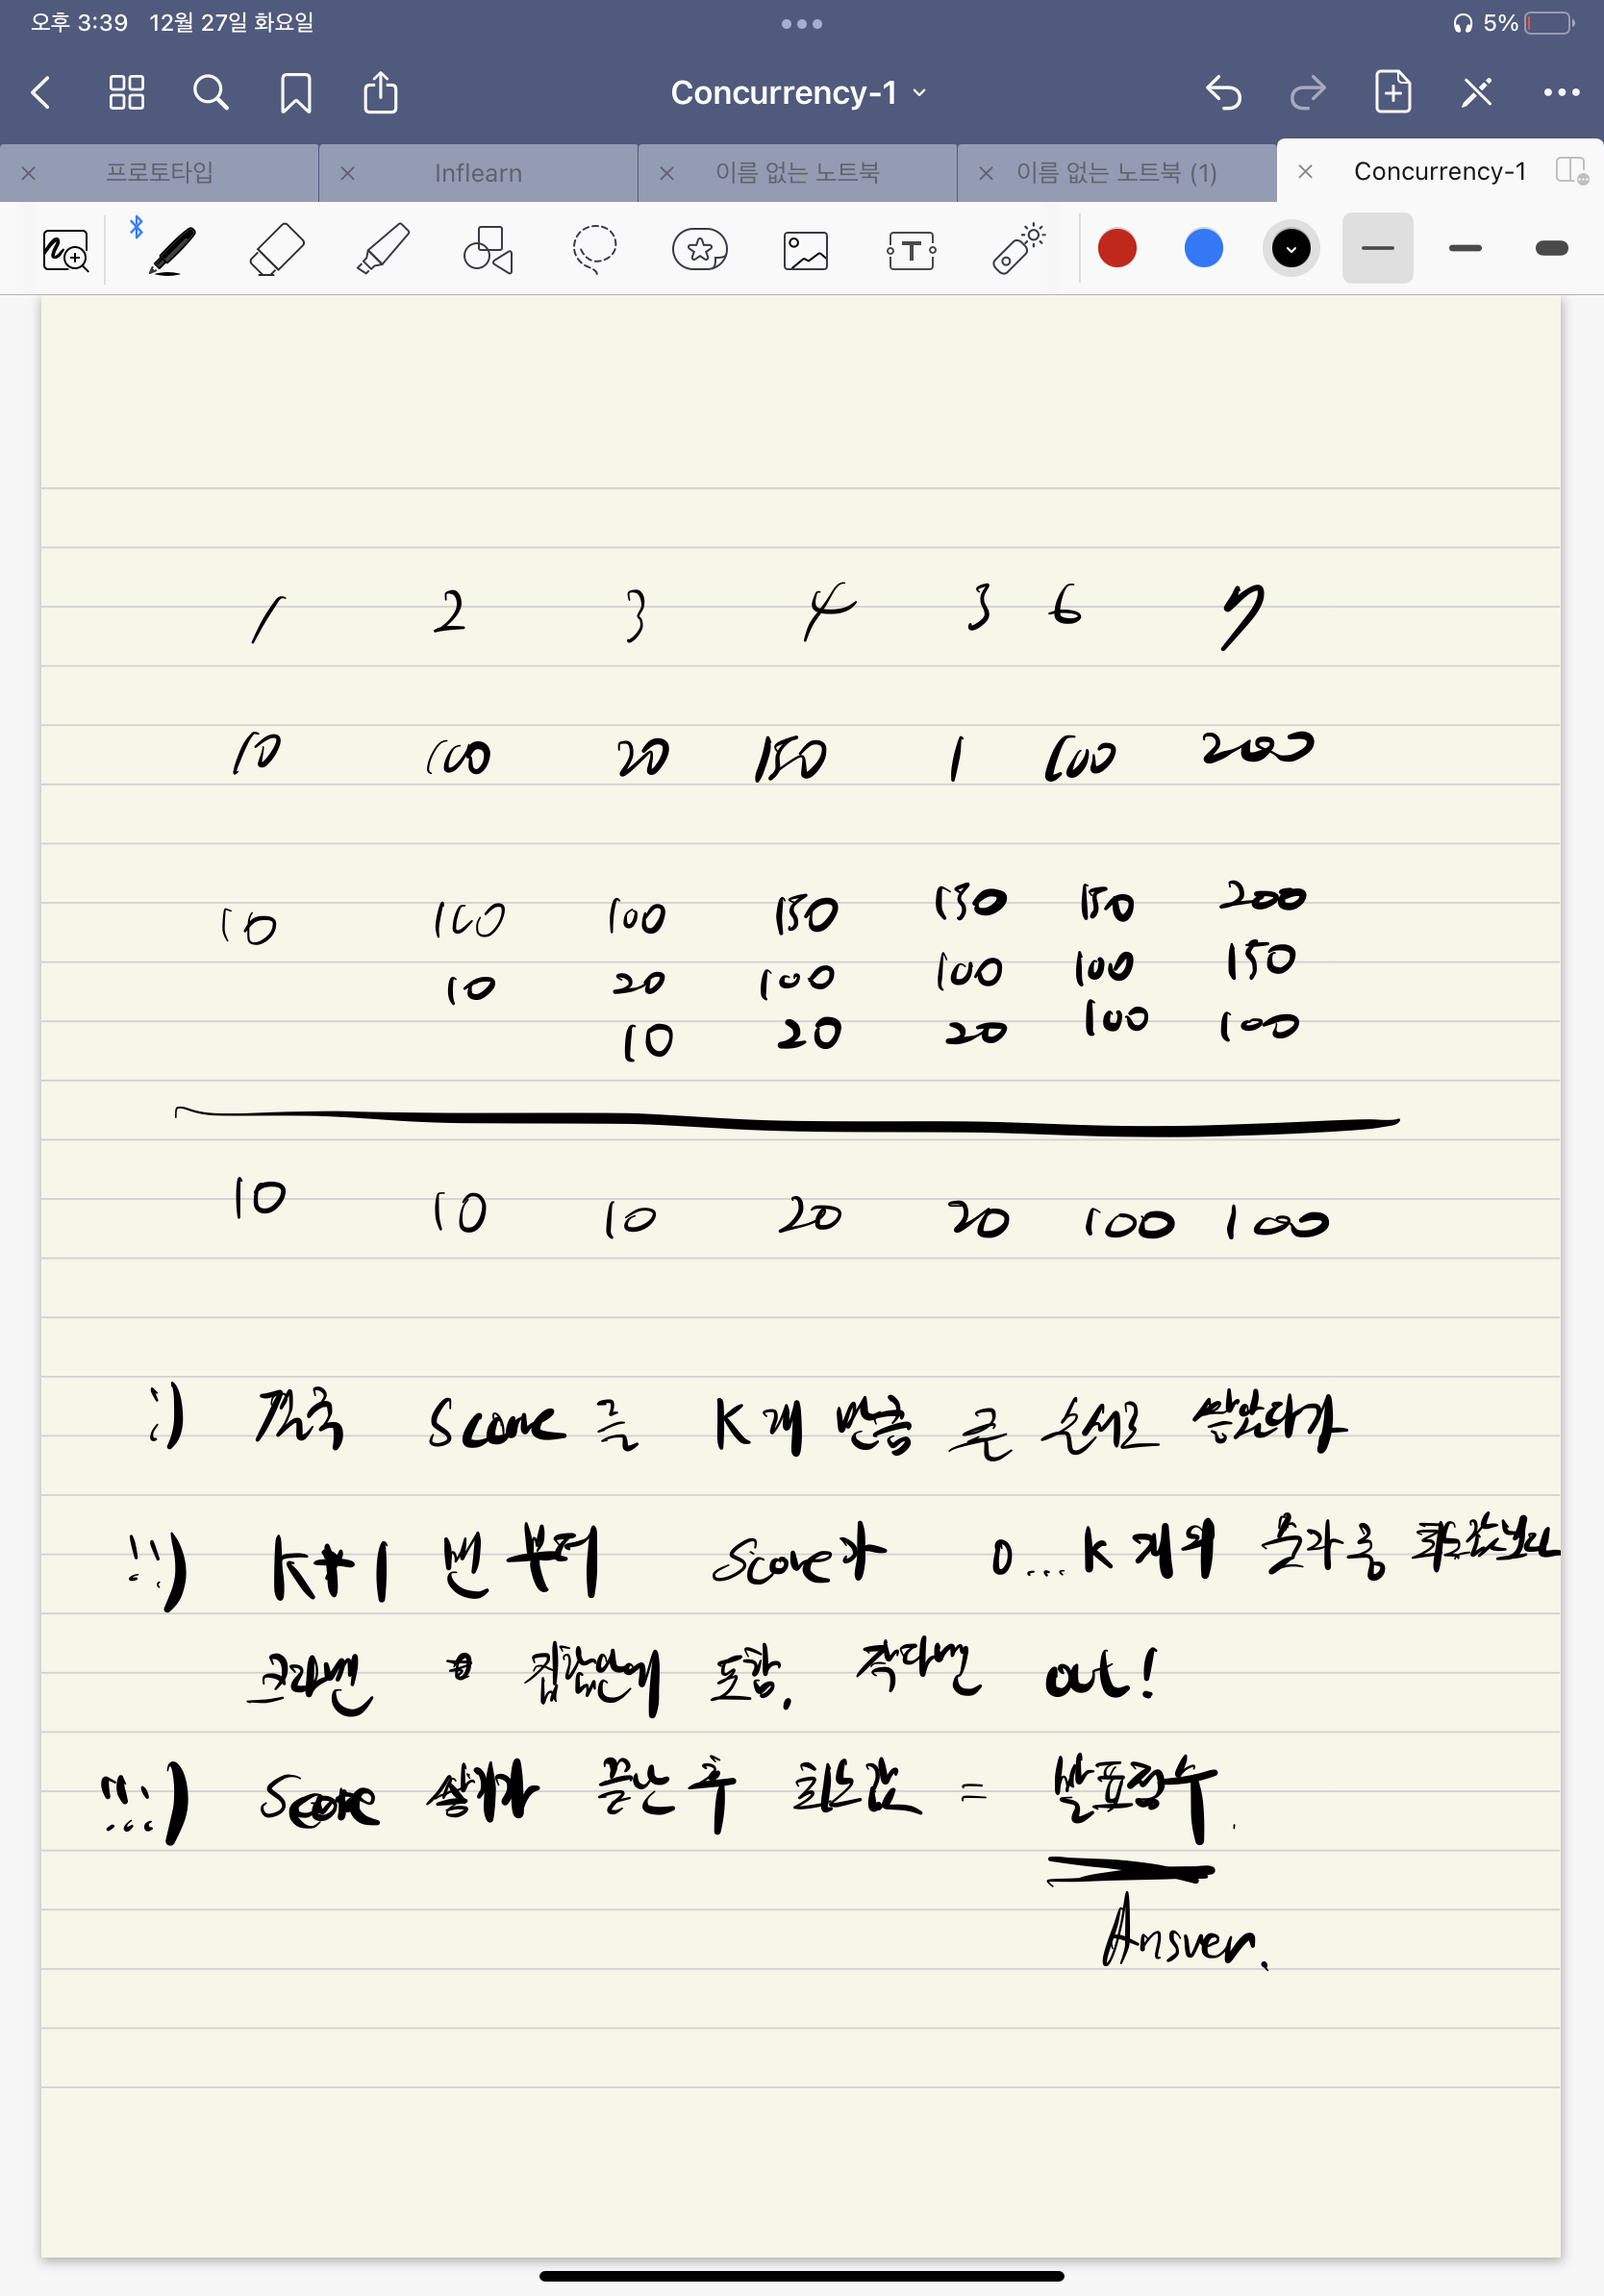 오후 3:39 12월 27일 화요일 5%
Concurrency-1
프로토타입 Inflearn 이름 없는 노트북 이름 없는 노트북 (1) Concurrency-1
1 2 3 4 3 6 7
10 100 20 150 1 100 200
10 100 100 150 150 150 200
10 20 100 100 100 150
10 20 20 100 100
10 10 10 20 20 100 100
i) Score를 K개 만큼 큰 순서로 쌓았다가
ii) K+1번 부터 Score가 0...K개의 최솟값보다
크다면 집합안에 포함. 작다면 out!
iii) Score 끝난 후 최소값 = 발표점수.
Answer.